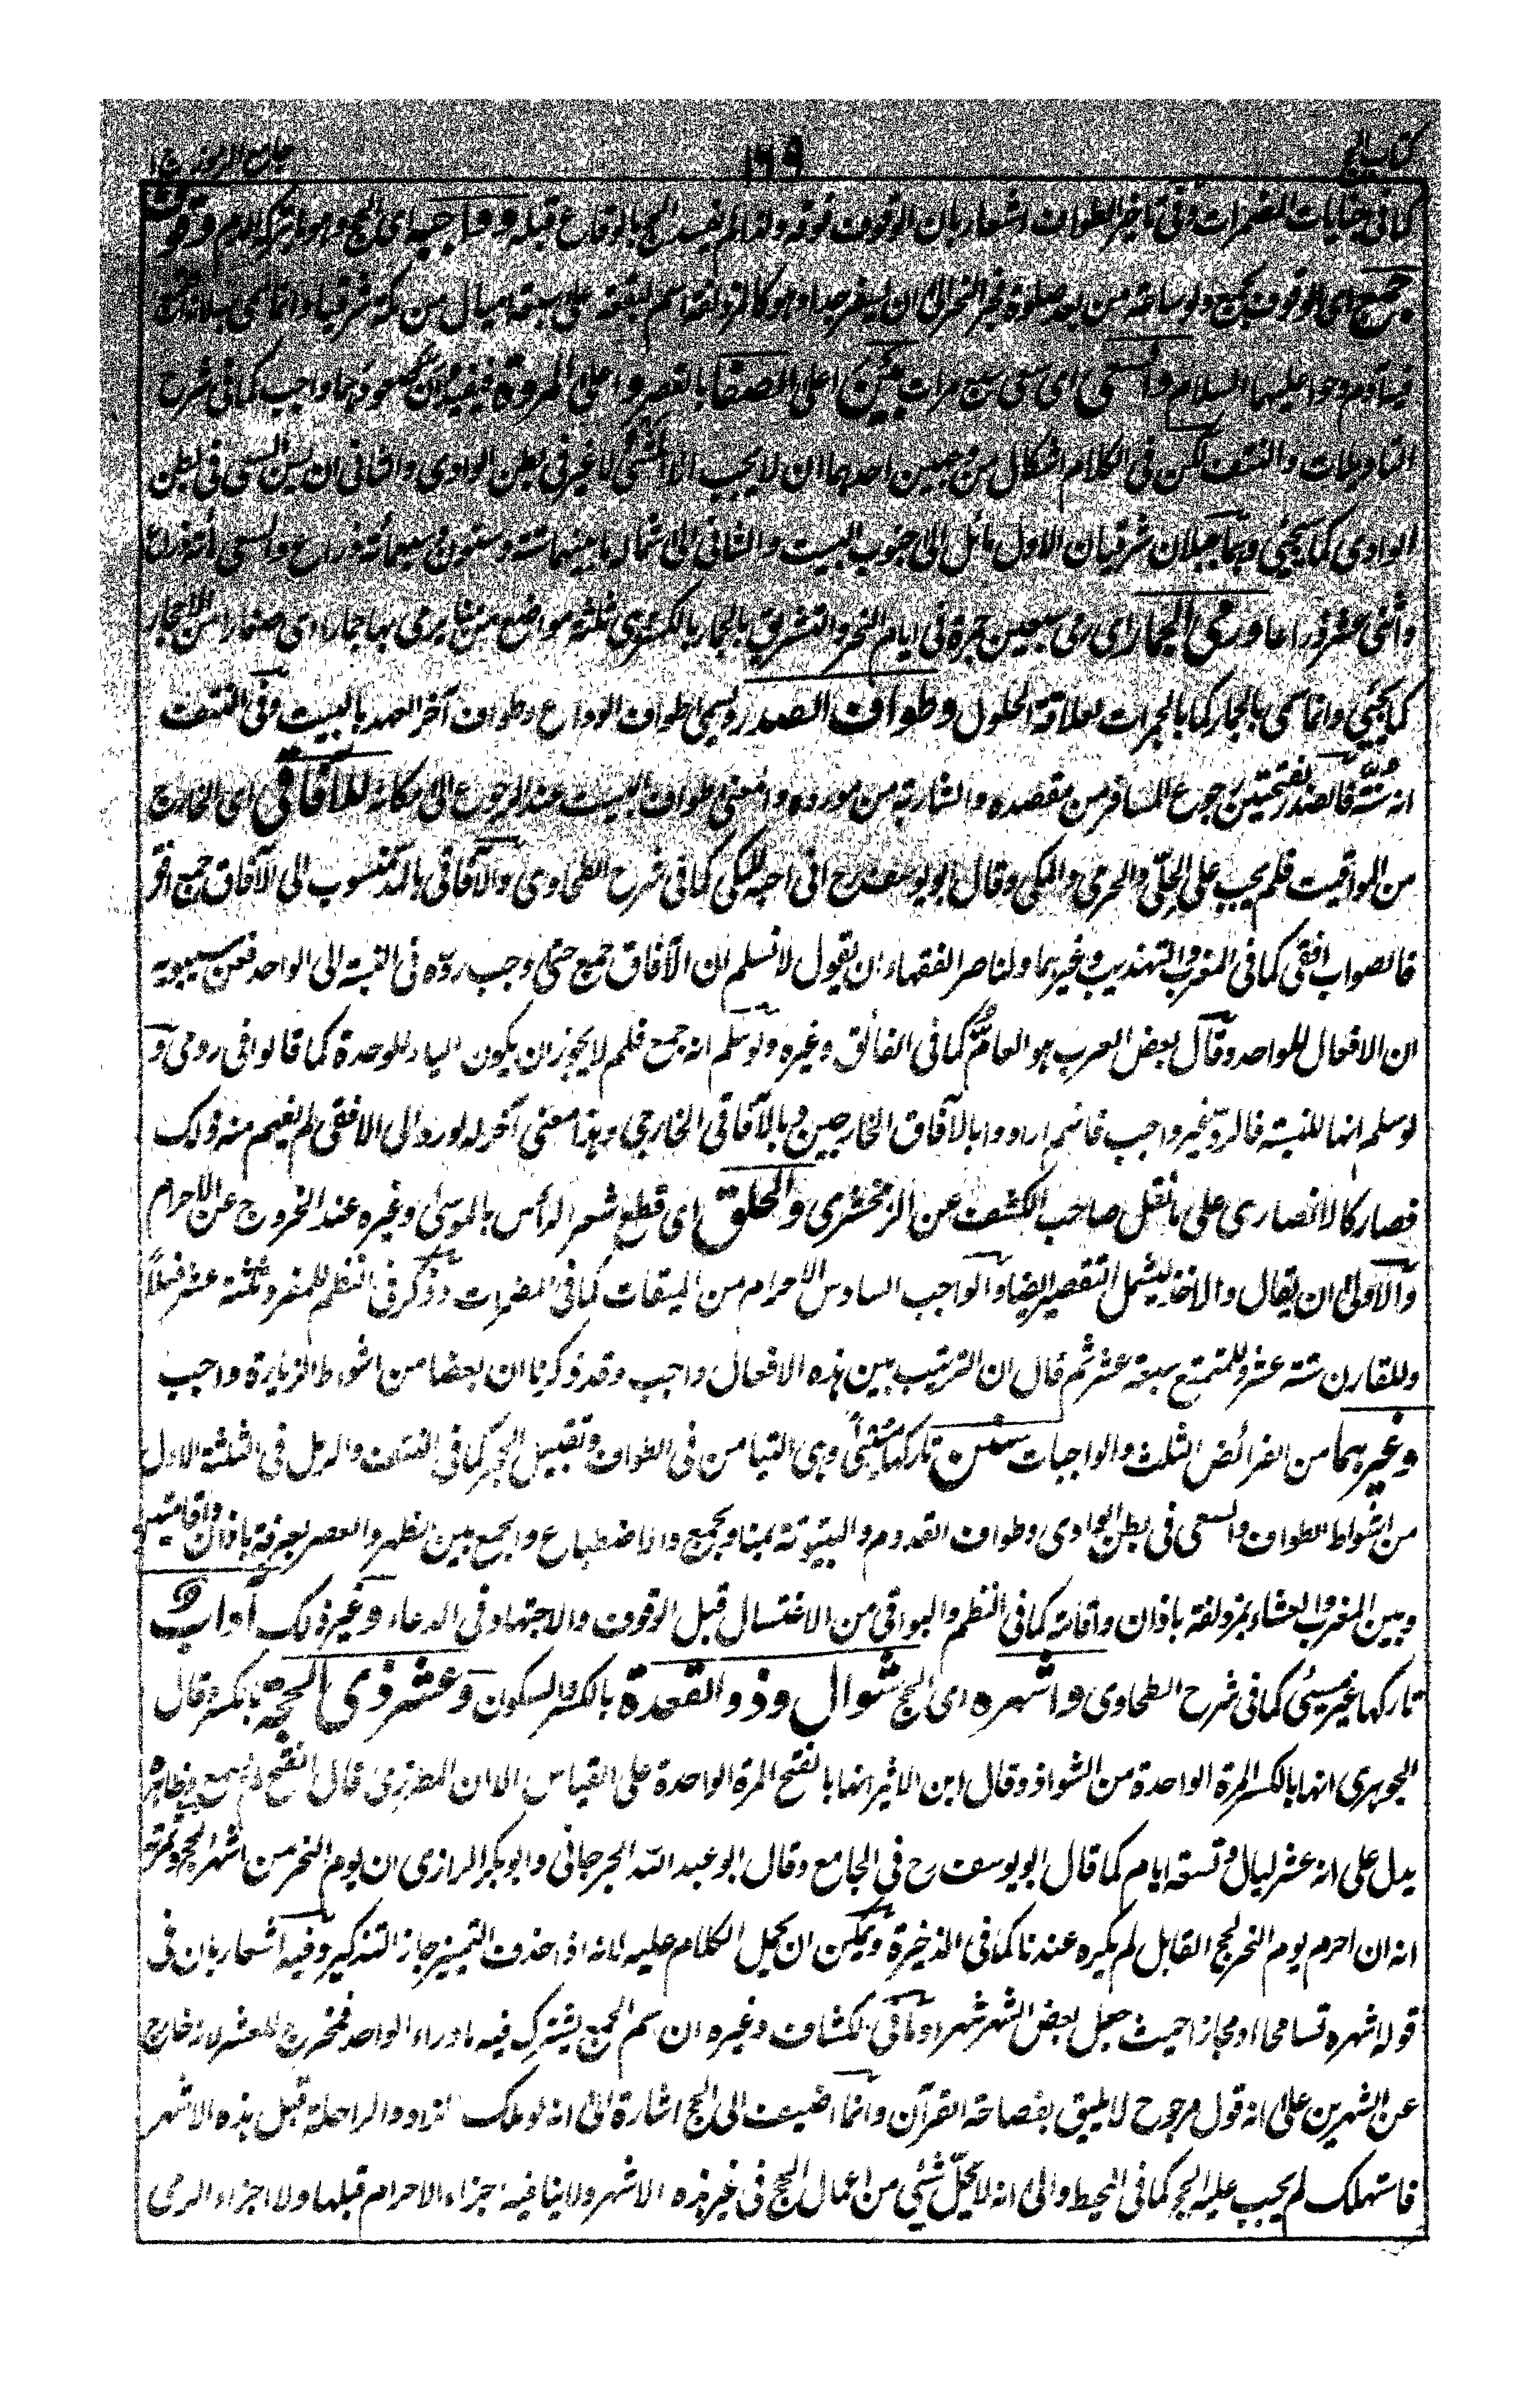 كتاب الحج ١٦٩ جامع الرموز ج ١
كما فى جنايات المضمرات وفى تاخير الطواف اشعار بان الوقوف فوقه ولذا لم يفسد الحج بالوقاع قبله وواجبه اى الحج وهو ما بتركه الدم وقوف
جمع اى الوقوف بجمع ولو ساعة من بعد صلوة فجر النحر الى ان يسفر جدا وهو كالمزدلفة اسم لبقعة على سبعة اميال من مكة شرقيا وانما سمى به لانه
فيه آدم وحوا عليهما السلام والسعى اى سعى سبع مرات بين اعلى الصفا بالقصر واعلى المروة فيفيد ان صعودهما واجب كما فى شرح
التاويلات والنتف لكن فى الكلام اشكال من وجهين احدهما ان لا يجب الا المشى لا غير فى بطن الوادى والثانى ان يسن السعى فى بطن
الوادى كما يجئى وهما جبلان شرقيان الاول مائل الى جنوب البيت والثانى الى شماله ما بينهما ستة وستون وسبعمائة ذراع والسعى
واثنى عشر ذراعا ورمى الجمار اى رمى سبعين جمرة فى ايام النحر والتشريق بالجمار بالكسر اى ثلثة مواضع من منا يرمى بها جمارا اى صغارا من الاحجار
كما يجئى وانما سمى بالجمار كما بالجمرات لعلاقة الحلول وطواف الصدر ويسمى طواف الوداع وطواف آخر العهد بالبيت وفى النتف
انه سنة فالصدر بفتحتين رجوع المسافر من مقصده والشاربة من مورده والمعنى طواف البيت عند الرجوع الى مكانه للآفاقى اى الخارج
من المواقيت فلم يجب على الحلى والحرمى والمكى وقال ابو يوسف رح انى احبه للمكى كما فى شرح الطحاوى والآفاقى بالمد منسوب الى الآفاق جمع افق
فالصواب افقى كما فى المغرب والتهذيب وغيرهما ولناصر الفقهاء ان يقول لا نسلم ان الآفاق جمع حتى وجب رده فى النسبة الى الواحد فعن سيبويه
ان الافعال للواحد وقال بعض العرب هو العام كما فى الفائق وغيره ولو سلم انه جمع فلم لا يجوز ان يكون الياء للوحدة كما قالوا فى رومى و
لو سلم انها للنسبة فالرد غير واجب فانهم ارادوا بالآفاق الخارجين وبالآفاقى الخارجى وهذا معنى آخر له لو رد الى الافقى لم يفهم منه ذلك
فصار كالانصارى على ما نقل صاحب الكشف عن الزمخشرى والحلق اى قطع شعر الرأس بالموسى وغيره عند الخروج عن الاحرام
والاولى ان يقال والاخذ ليشمل التقصير ايضا والواجب السادس الاحرام من الميقات كما فى المضمرات وذكر فى النظم للمفرد ثلثة عشر فعلا
وللقارن ستة عشر وللمتمتع سبعة عشر ثم قال ان الترتيب بين هذه الافعال واجب وقد ذكرنا ان بعضا من اشواط الزيارة واجب
وغيرهما من الفرائض الثلث والواجبات سنن تاركها مسئى وهى التيامن فى الطواف وتقبيل الحجر كما فى النتف والرمل فى الثلثة الاول
من اشواط الطواف والسعى فى بطن الوادى وطواف القدوم والبيتوتة بمنا وبجمع والاضطباع والجمع بين الظهر والعصر بعرفة باذان واقامتين
وبين المغرب والعشاء بمزدلفة باذان واقامة كما فى النظم والبواقى من الاغتسال قبل الوقوف والاجتهاد فى الدعاء وغير ذلك آداب و
تاركها غير مسئى كما فى شرح الطحاوى واشهره اى الحج شوال وذو القعدة بالكسر والسكون وعشر ذى الحجة بالكسر وقال
الجوهرى انها بالكسر المرة الواحدة من الشواذ وقال ابن الاثير انها بالفتح المرة الواحدة على القياس الا ان المطرزى قال الفتح لم يسمع وظاهره
يدل على انه عشر ليال وتسعة ايام كما قال ابو يوسف رح فى الجامع وقال ابو عبد الله الجرجانى وابو بكر الرازى ان يوم النحر من اشهر الحج وثمرته
انه ان احرم يوم النحر لحج القابل لم يكره عندنا كما فى الذخيرة ويمكن ان يحمل الكلام عليه لانه اذا حذف التميز جاز التذكير وفيه اشعار بان فى
قوله اشهره تسامحا او مجازا حيث جعل بعض الشهر شهرا وما فى الكشاف وغيره ان اسم الجمع يشترك فيه ما وراء الواحد فمخرج للعشر لانه خارج
عن الشهرين على انه قول مرجوح لا يليق بفصاحة القرآن وانما اضيف الى الحج اشارة الى انه لو ملك الزاد والراحلة قبل هذه الاشهر
فاستهلك لم يجب عليه الحج كما فى المحيط والى انه لا يحل شئى من اعمال الحج فى غير هذه الاشهر ولا ينافيه اجزاء الاحرام قبلها ولا اجزاء الرمى